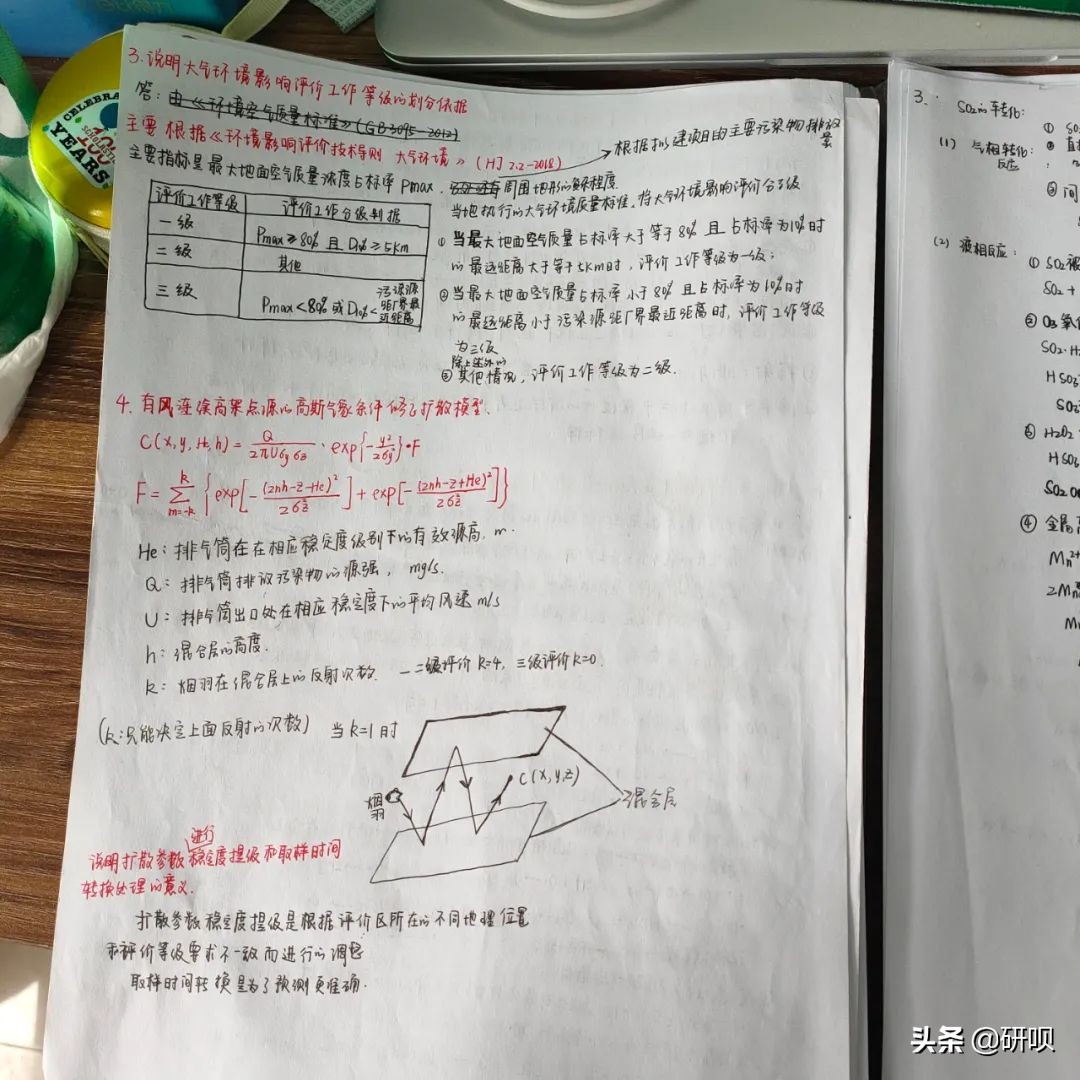 3.说明大气环境影响评价工作等级的划分依据
答：由《环境空气质量标准》(GB3095-2012)
主要根据《环境影响评价技术导则 大气环境》(HJ 2.2-2018)
根据拟建项目的主要污染物排放量
主要指标是最大地面空气质量浓度占标率Pmax.
周围地形的复杂程度.
当地执行的大气环境质量标准.将大气环境影响评价分三级
评价工作等级 评价工作分级判据
一级 Pmax≥80% 且 D10%≥5km
二级 其他
三级 Pmax<80% 或 D10%<污染源距厂界最近距离
① 当最大地面空气质量占标率大于等于80% 且占标率为10%时
的最远距离大于等于5km时，评价工作等级为一级；
②当最大地面空气质量占标率小于80% 且占标率为10%时
的最远距离小于污染源距厂界最近距离时，评价工作等级
为三级
③其他情况，评价工作等级为二级.
除上述外的
4.有风连续高架点源的高斯气象条件修正扩散模型.
C(x,y,He,h)=Q/2πUσyσz·exp{-y²/2σy²}·F
F=Σ(m=-k→k){exp[-(2nh-z-He)²/2σz²]+exp[-(2nh-z+He)²/2σz²]}
He：排气筒在在相应稳定度级别下的有效源高，m.
Q：排气筒排放污染物的源强，mg/s.
U：排气筒出口处在相应稳定度下的平均风速 m/s
h：混合层的高度.
k：烟羽在混合层上的反射次数. 一二级评价 k=4，三级评价k=0.
(k:只能决定上面反射的次数) 当k=1时
烟羽
C(x,y,z)
混合层
进行
说明扩散参数稳定度提级和取样时间
转换处理的意义.
扩散参数稳定度提级是根据评价区所在的不同地理位置
和评价等级要求不一致而进行的调整
取样时间转换是为了预测更准确.
3.
SO₂的转化：
(1) 气相转化：
反应
① SO
② 直
③ 间
(2) 液相反应：
① SO₂被
SO₂+
② O₃氧
SO₂·H₂
HSO₃
SO₃
③ H₂O₂
HSO₃
SO₂.
④ 金属
Mn²⁺
2Mn
Mn
头条 @研呗